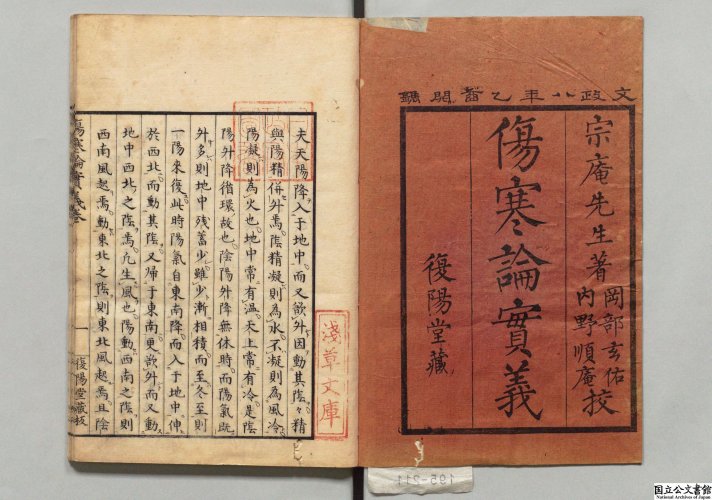 文政八年乙酉開鐫
宗庵先生著
岡部玄佑
内野順庵
挍
傷寒論實義
復陽堂藏
夫天陽降入于地中而又欲外因動其陰々精
與陽精併外焉陰精凝則為水不凝則為風冷
陽凝則為火也地中常有温天上常有冷是陰
陽外降循環故也陰陽外降無休時而陽氣既
外多則地中残蓄少雖少漸相積而至冬至則
一陽來復此時陽氣自東南降而入于地中伸
於西北而動其陰又帰于東南更欲外而又動
地中西北之陰焉凢生風也陽動西南之陰則
西南風起焉動東北之陰則東北風起焉且陰
傷寒論實義卷
一
復陽堂藏板
淺草文庫
195-211
国立公文書館
National Archives of Japan